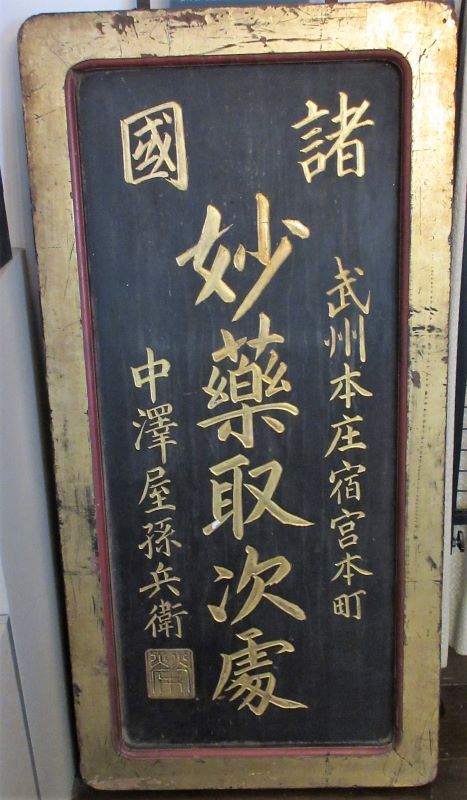 諸國
妙藥取次處
武州本庄宿宮本町
中澤屋孫兵衛